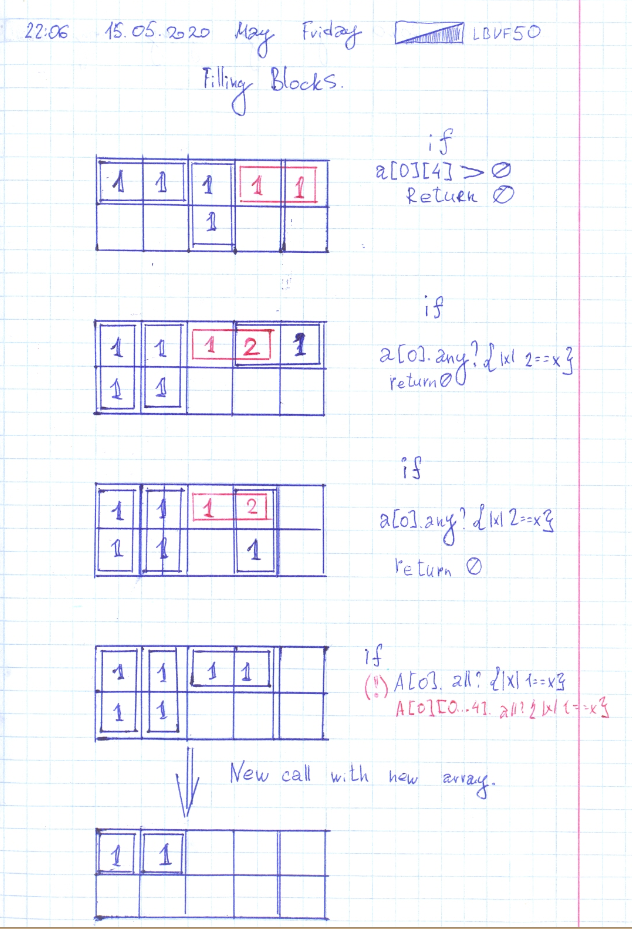 22:06 15.05.2020 May Friday LBVF50
Filling Blocks.
if
1 1 1 1 1
a[0][4] > 0
Return 0
1
if
1 1 1 2 1
a[0].any?{|x| 2==x}
return 0
1 1
if
1 1 1 2
a[0].any?{|x| 2==x}
1 1 1
return 0
if
1 1 1 1
(!) A[0]. all? {|x| 1==x}
A[0][0..4]. all? {|x| 1==x}
1 1
New call with new array.
1 1